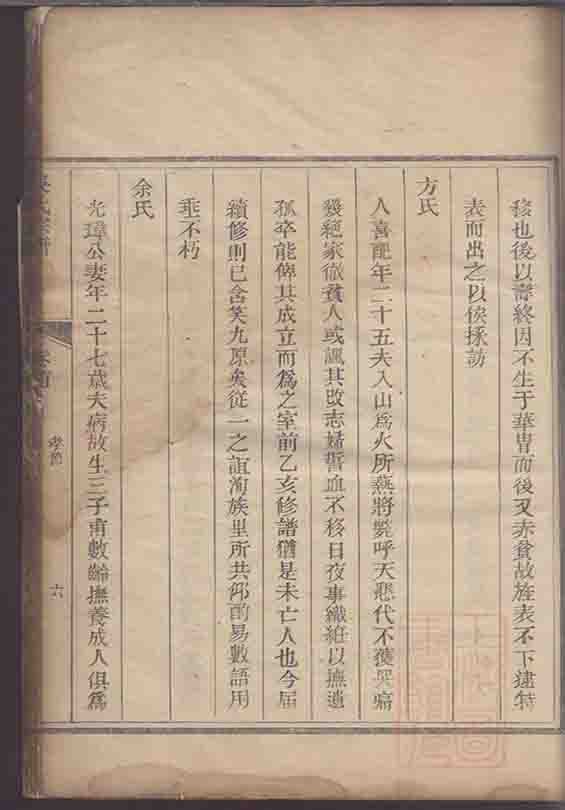 移也後以壽終因不生于華冑而後又赤貧故旌表不下逮特
表而出之以俟採訪
方氏
人喜配年二十五夫入山爲火所燕將斃呼天悲代不獲哭痛
幾絕家徹貧人或諷其改志婦誓血不移日夜事織紝以撫遺
孤卒能俾其成立而爲之室前乙亥修譜猶是未亡人也今屆
續修則已含笑九原矣從一之誼洵族里所共仰酌易數語用
垂不朽
余氏
光璋公妻年二十七歲夫病故生三子甫數齡撫養成人俱爲
卷首
孝節
六